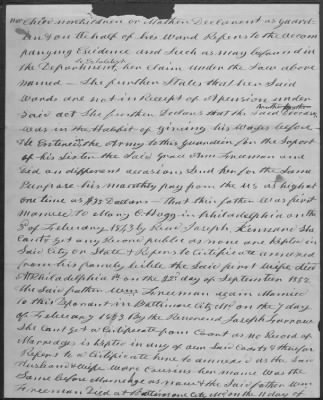 nor Children nor Mother Declarent as guard
ian & on the half of her Ward Refers to the accom
panying Evidence and such as may be found in
to Establish
the Department, her claim under the Law above
named — She further States that her Said
Wards are not in Receipt of a pension under
Said act She further Declares that the Said
was in the Habit of giveing his Wages before
he Entered the Army to this guardian for the Suport
of his Sister the Said Grace Ann Freeman and
did on different occasions Send her for the Same
Purpose his monthly pay from the US as high at
one time as $35 Dollars — That their father was first
married to Mary C. Hagg in Philadelphia on the
of February 1843 by Revd Joseph Kennard She
Cant get any Record public as none are kepted in
Said City or State & Refers to Certificate annexed
from his family bible the Said first wife died
at Philadelphia Pa on the 22d day of September 1852
the Said father Freeman again Married
to this Deponant in Baltimore City Md on the 7 day
of February 1853 By the Reverend Joseph
She Cant get a Certificate from Court as no Record of
Marriages is kepted in any of our Said Courts & therefore
Refers to a Certificate here to annexed as the Said
Husband & wife were Cousins her name was the
Same before Marriage as now & the Said father Wm
Freeman Died at Baltimore City Md on the 11 day of